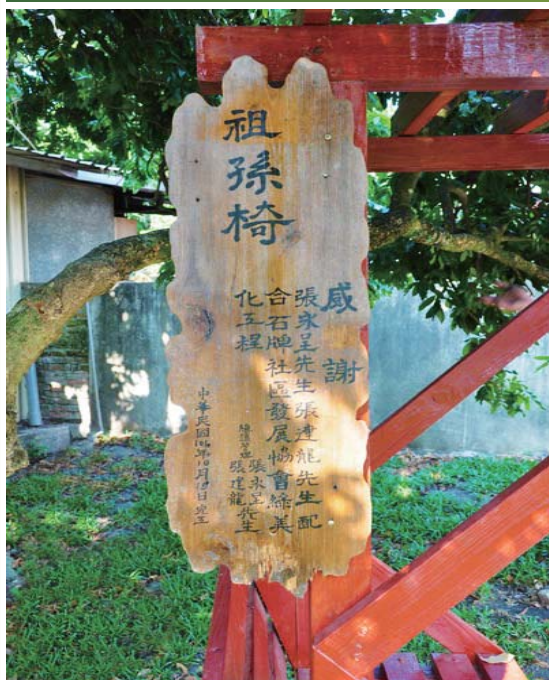 祖孫椅
感謝
張永呈先生張達龍先生配
合石牌社區發展協會綠美
化工程
張永呈
張達龍先生
中華民國
年10月
日完工